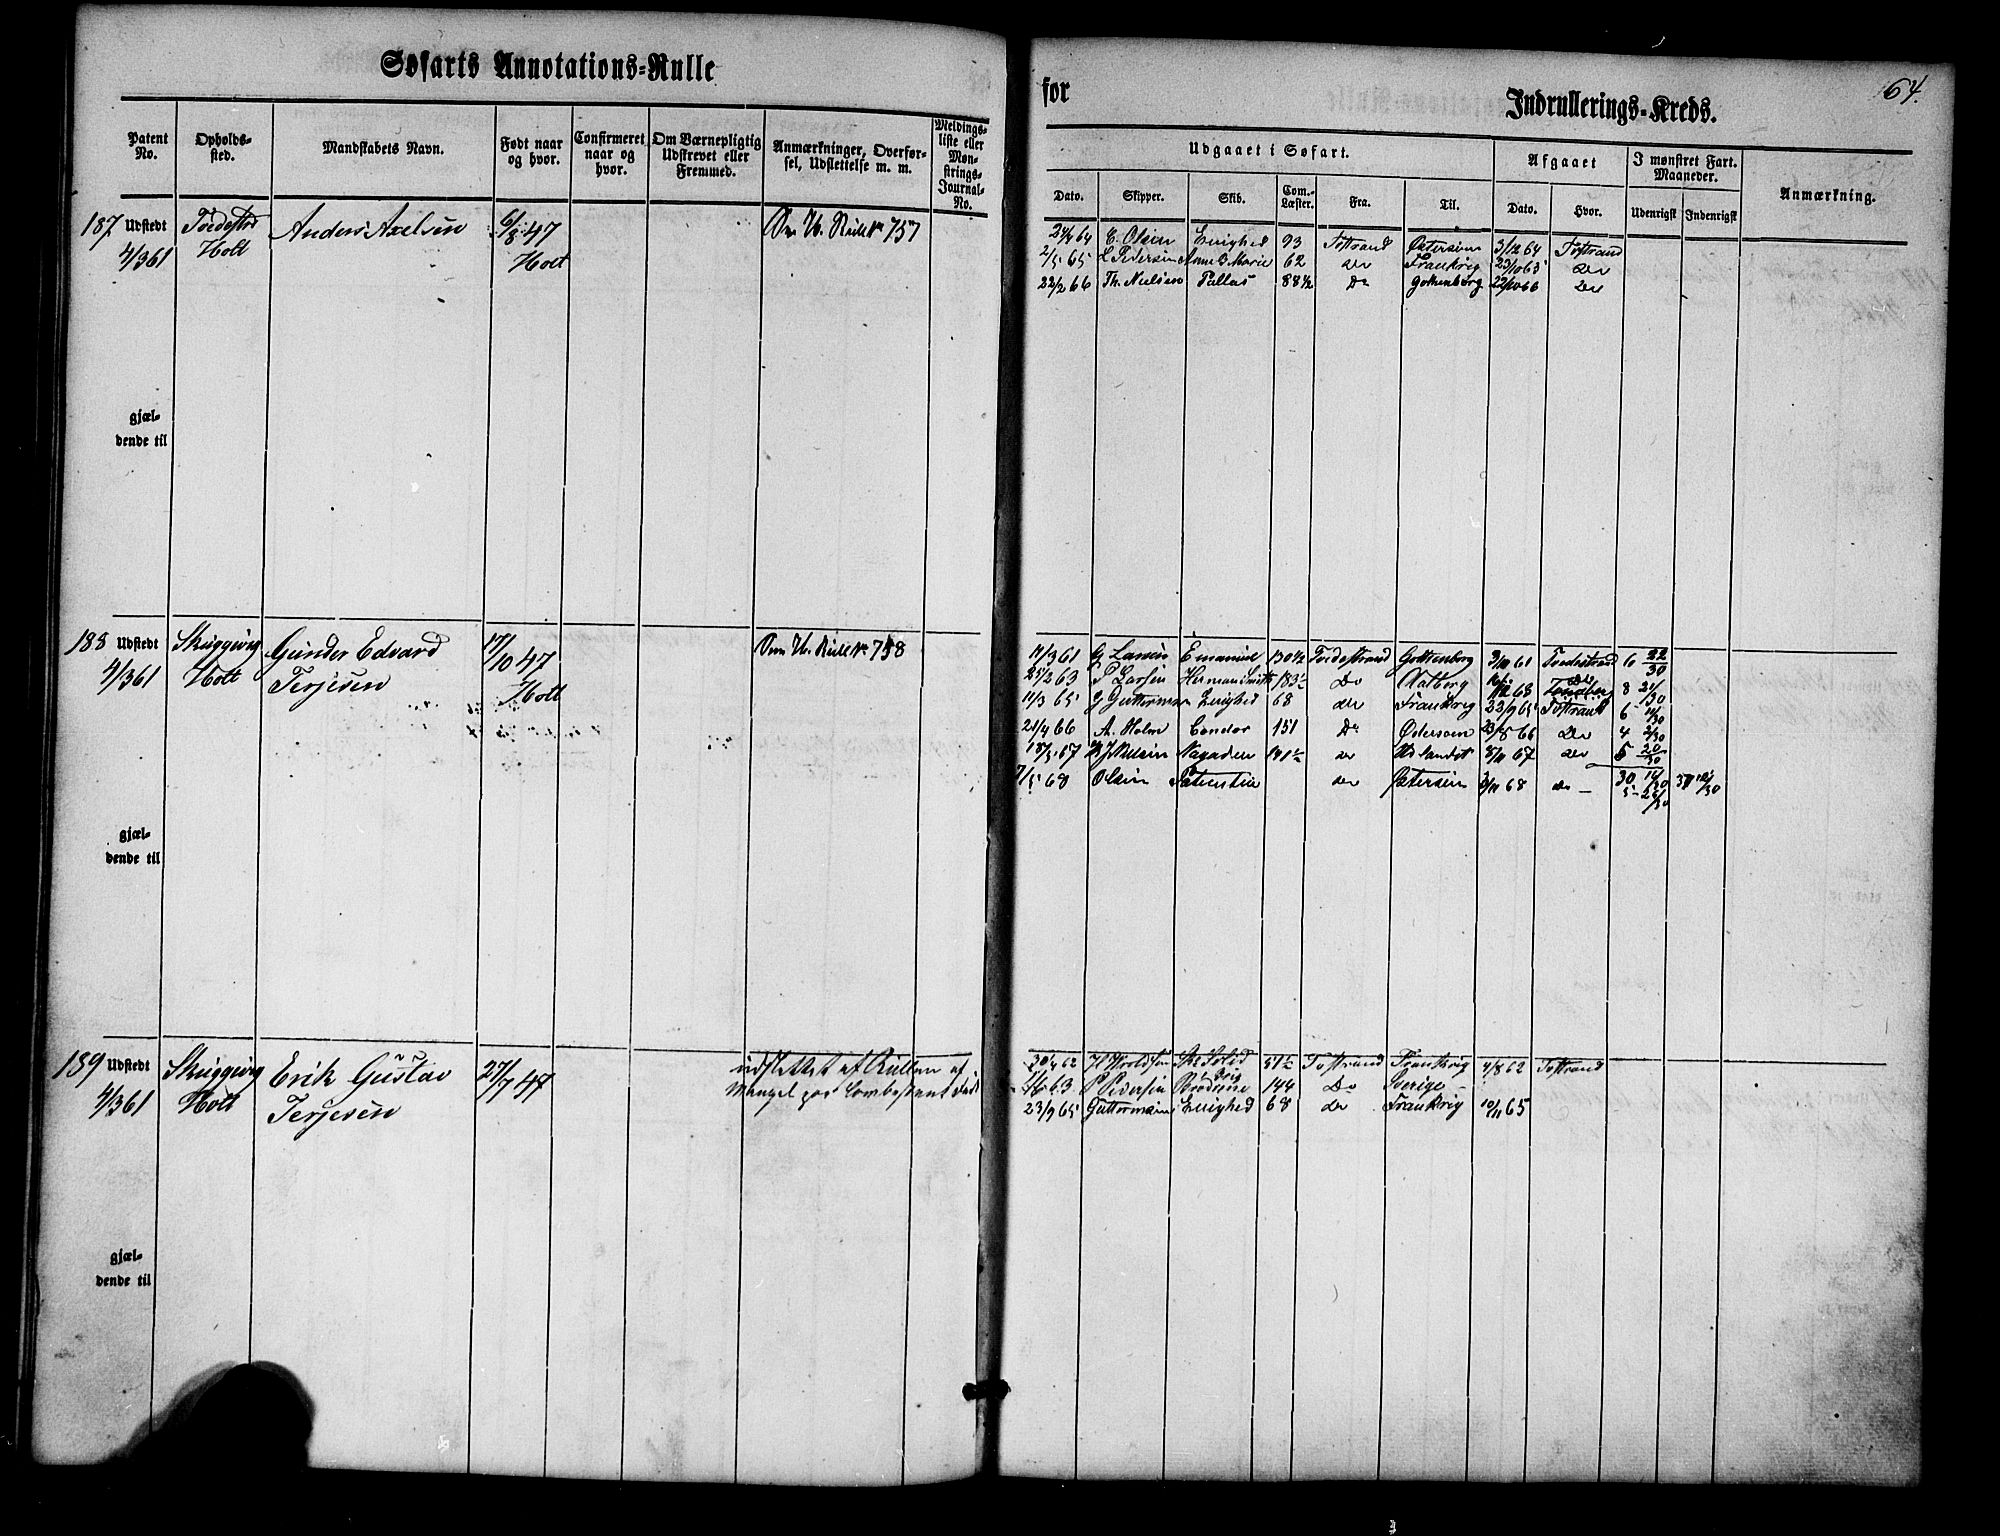 Søfarts Annotations-Rulle
for
Indrullerings-Kreds.
64.
Patent No.
Opholds-sted.
Mandskabets Navn.
Født naar og hvor.
Confirmeret naar og hvor.
Om Værnepligtig Udskrevet eller Fremmed.
Anmærkninger, Overførsel, Udslettelse m. m.
Meldings-liste eller Mønstrings-Journal-No.
Udgaaet i Søfart.
Afgaaet
I mønstret Fart. Maaneder.
Anmærkning.
Dato. Skipper. Skib. Com.-Læster. Fra. Til. Dato. Hvor. Udenrigsk Indenrigsk
187 Udstedt Anders Axelsen 6/8 47 H. Rulle No 757
4/3 61 Holt Holt
24/4 64 E. Olsen Enighed 93 Tvstrand Østersøen 3/12 64 Tvstrand
2/5 65 L Pedersen Anne B Marie 62 do Frankrig 23/10 65 do
22/2 66 Th. Nielsen Pallas 88½ Do Gothenborg 22/10 66 do
gjæl-
dende til
188 Udstedt Skuggevig Gunder Edvard 17/10 47 H. Rulle No 758
4/3 61 Holt Terjesen Holt
11/3 61 G Larsen Emanuel 130½ Tvedestrand Gottenborg 3/11 61 Tvedestrand 6 22/30
21/2 63 P Larsen Herman Smith 183½ Do Aalborg 8 21/30
11/3 65 G Guttormsen Enighed 68 do Frankrig 23/9 65 Tvstrand 6 11/30
21/4 66 A. Holm Condor 151 Do Østersøen 23/8 66 do 4 2/30
18/3 67 Udlandet 8/11 67 do 5 20/30
7/5 68 Olsen do Østersøen 3/11 68 do 30 16/30
5 26/30
gjæl-
dende til
189 Udstedt Skuggevig Erik Gustav 27/7 47 udslettet af Rullen af
4/3 61 Holt Terjesen Mangel paa
30/4 62 51½ Tvstrand Frankrig 4/8 62 Tvstrand
1/6 63 P Pedersen Brødrene 144 Do Sverige
23/9 65 Guttormsen Enighed 68 do Frankrig 10/11 65
gjæl-
dende til